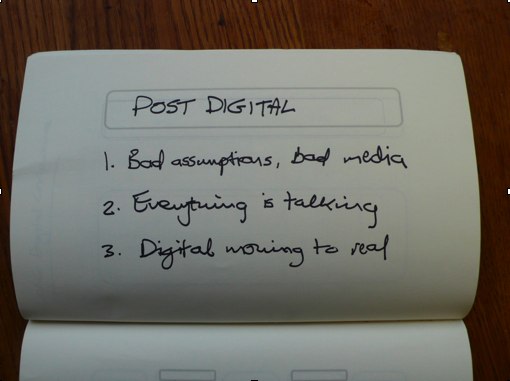 POST DIGITAL
1. Bad assumptions, bad media
2. Everything is talking
3. Digital moving to real